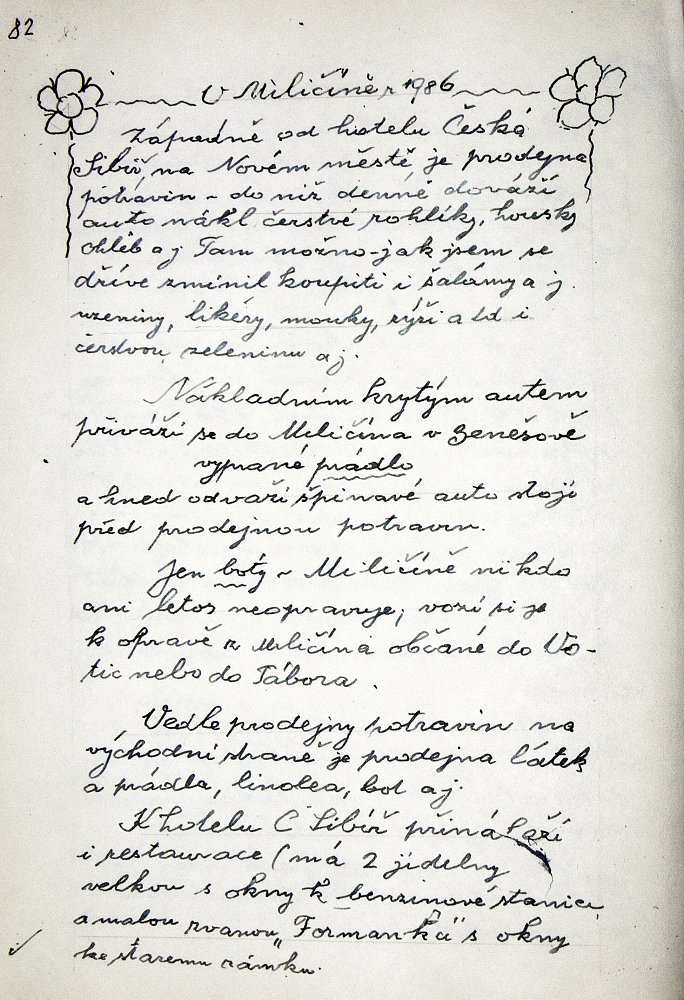 82
V Miličíně r 1986
Západně od hotelu Česká
Sibiř, na Novém městě je prodejna
potravin - do níž denně dováží
auto nákl čerstvé rohlíky, housky
chléb aj Tam možno - jak jsem se
dříve zmínil koupiti i salámy a j.
uzeniny, likéry, mouky, rýži a td i
čerstvou zeleninu aj.
Nákladním krytým autem
přiváží se do Miličína v Benešově
vyprané prádlo
a hned odváží špinavé auto stojí
před prodejnou potravin.
Jen boty - Miličíně nikdo
ani letos neopravuje; vozí si je
k opravě z Miličína občané do Vo-
tic nebo do Tábora.
Vedle prodejny potravin na
východní straně je prodejna látek
a prádla, linolea, bot aj.
K hotelu Č Sibiř přináleží
i restaurace (má 2 jídelny
velkou s okny k benzinové stanici
a malou zvanou "Formanka" s okny
ke starému zámku.